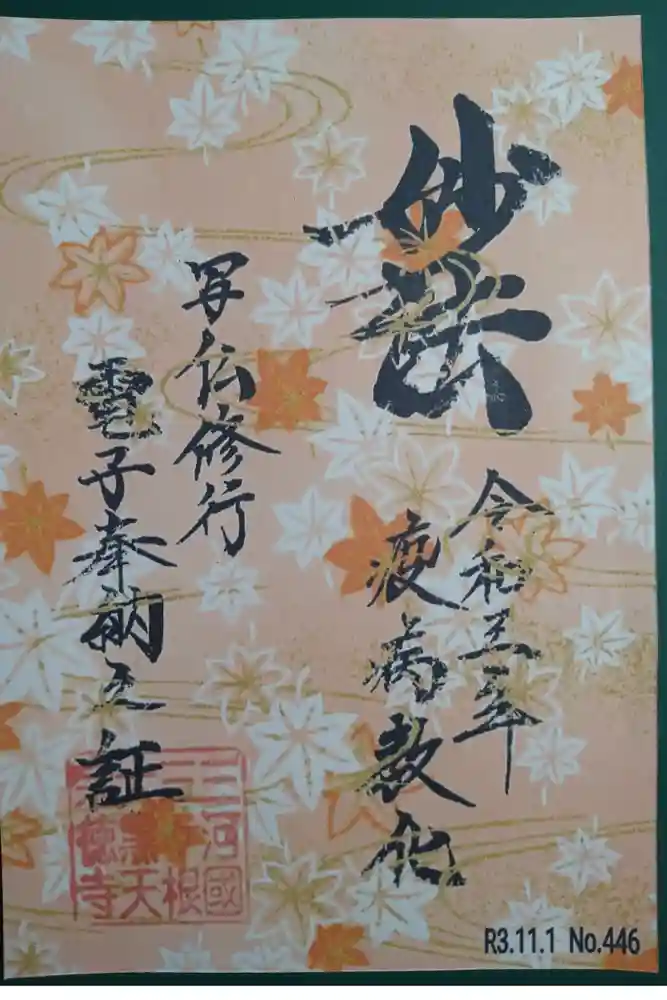 妙法
令和三年
疫病教化
写仏修行
電子奉納之証
三河國
寺
R3.11.1 No.446